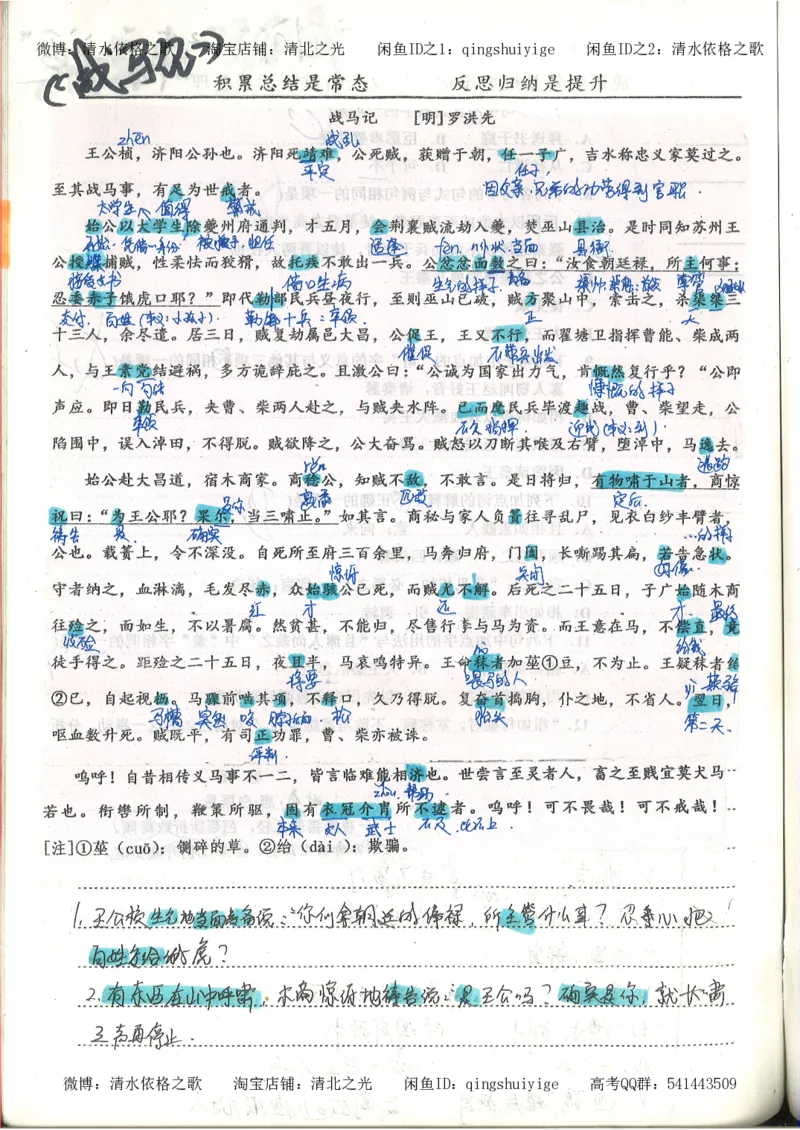 微博：清水依格之歌 淘宝店铺：清北之光 闲鱼ID之1：qingshuiyige 闲鱼ID之2：清水依格之歌
《战马记》
积累总结是常态 反思归纳是提升
战马记 [明]罗洪先
zhēn 战乱
王公桢，济阳公孙也。济阳死靖难，公死贼，获赠于朝，任一子广，吉水称忠义家莫过之。
平定 任子
至其战马事，有足为世戒者。
因父亲、兄弟的功劳得到官职．
大学生 值得 警戒
始公以大学生除夔州府通判，才五月，会荆襄贼流劫入夔，焚巫山县治。是时同知苏州王
凭借…身份 被授予，担任 适逢 当面 县衙
公授牒捕贼，性柔怯而狡猾，故托疾不敢出一兵。公忿忿面数之曰：“汝食朝廷禄，所主何事；
借口生病 生气的样子
忍委赤子饿虎口耶？”即代勒部民兵昼夜行，至则巫山已破，贼方聚山中，索击之，杀渠渠三
交付 正 大
十三人，余尽遣。居三日，贼复劫属邑大昌，公促王，王又不行，而瞿塘卫指挥曹能、柴成两
催促 不带兵出发
人，与王素党结避祸，多方诡辞庇之。且激公曰：“公诚为国家出力气，肯慨然复行乎？”公即
一向勾结 慷慨的样子
声应。即日勒民兵，夹曹、柴两人赴之，与贼夹水阵。已而麾民兵毕渡趣战，曹、柴望走，公
率领 不久 指挥
陷围中，误入淖田，不得脱。贼欲降之，公大奋骂。贼怒以刃断其喉及右臂，堕淖中，马逸去。
逃跑
始公赴大昌道，宿木商家。商稔公，知贼不敌，不敢言。是日将归，有物啸于山者，商惊
rěn 熟悉 匹敌 定后
祝曰：“为王公耶？果尔，当三啸止。”如其言。商秘与家人负箦往寻乱尸，见衣白纱半臂者，
祷告 是 确实 …的样
公也。载箦上，令不深没。自死所至府三百余里，马奔归府，门阖，长嘶踢其扁，若告急状。
惊讶 关闭
守者纳之，血淋漓，毛发尽赤，众始骇公已死，而贼尤不解。后死之二十五日，子广始随木商
红 才 还 才
往殓之，而如生，不以暑腐。然贫甚，不能归，尽售行李与马为资。而王意在马，不偿直，竟
收殓 给钱 最终
徒手得之。距殓之二十五日，夜且半，马哀鸣特异。王命秣者加莝①豆，不为止。王疑秣者绐
将要 喂马的人
②已，自起视枥。马骤前啮其项，不释口，久乃得脱。复奋首捣胸，仆之地，不省人。翌日，
马槽 突然 咬 脖后面 松 抬头 第二天、
呕血数升死。贼既平，有司正功罪，曹、柴亦被诛。
评判．
呜呼！自昔相传义马事不一二，皆言临难能相济也。世尝言至灵者人，畜之至贱宜莫犬马
若也。衔辔所制，鞭策所驱，固有衣冠介胄所不逮者。呜呼！可不畏哉！可不戒哉！
本来 文人 武士 不及，比不上．
[注]①莝（cuō）：铡碎的草。②绐（dài）：欺骗。
1.王公桢生气地当面数落说：“你们拿朝廷的俸禄，所主管什么事？忍心把
百姓交给饿虎？
2.有东西在山中呼啸，木商惊讶地祷告说：是王公吗？确实是你，就长啸
三声再停止．
微博：清水依格之歌 淘宝店铺：清北之光 闲鱼ID：qingshuiyige 高考QQ群：541443509